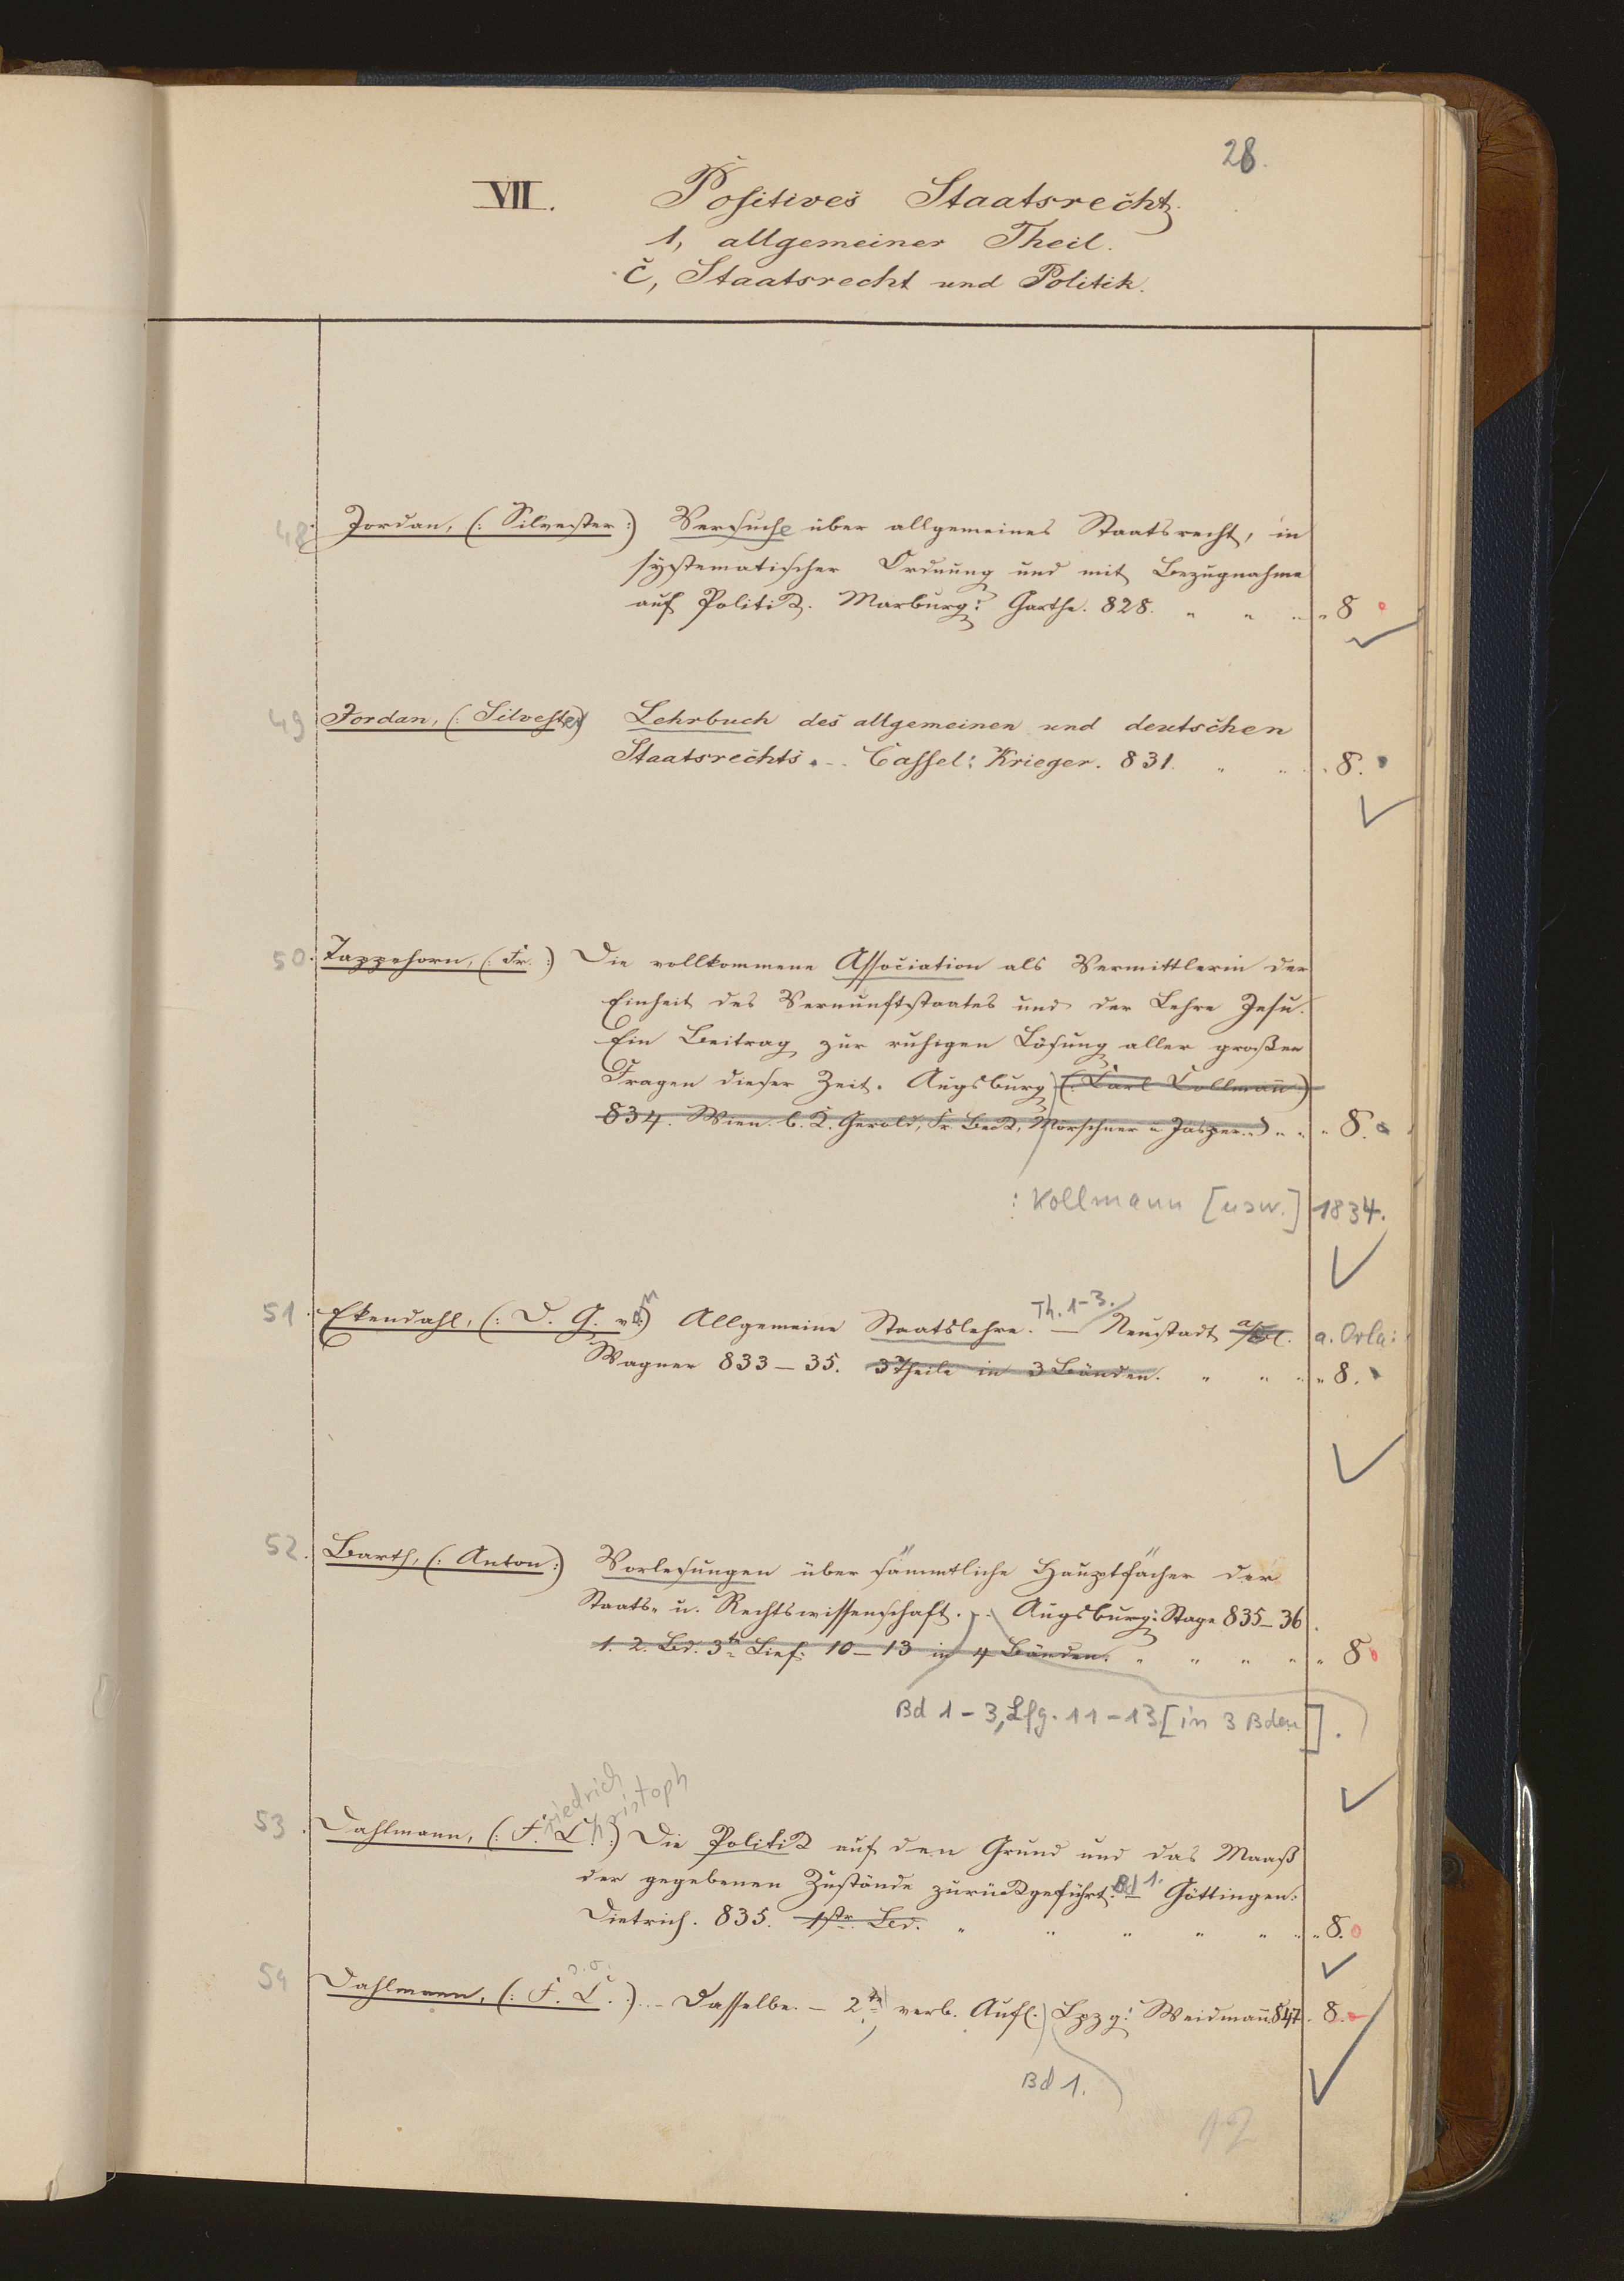 28.
VII. Positives Staatsrecht.
1, allgemeiner Theil.
C, Staatsrecht und Politik.
48. Jordan, (: Silvester :) Versuche über allgemeines Staatsrecht, in
systematischer Ordnung und mit Bezugnahme
auf Politik. Marburg: Garthe. 828. " " " " 8
49 Jordan, (: Silvester) Lehrbuch des allgemeinen und deutschen
Staatsrechts. - Cassel: Krieger. 831. " " " 8.
50. Tappehorn, (: Fr. :) Die vollkommene Association als Vermittlerin der
Einheit des Vernunftstaates und der Lehre Jesu.
Ein Beitrag zur ruhigen Lösung aller großen
Fragen dieser Zeit. Augsburg (: Karl Kollmann)
834. Wien. b. K. Gerold, Fr. Beck, Mörschner u. Jasper.) " " " 8.
: Kollmann [usw.] 1834.
51. Ekendahl, (: D. G. von) Allgemeine Staatslehre. Th. 1-3. — Neustadt a/Orl. a. Orla:
Wagner 833–35. 3 Theile in 3 Bänden. " " " " 8.
52. Barth, (: Anton :) Vorlesungen über sämmtliche Hauptfächer der
Staats- u. Rechtswissenschaft. - Augsburg: Stage 835–36.
1. 2. Bd. 3te Lief: 10–13 in 4 Bänden. " " " " " 8
Bd 1-3, Lfg. 11-13 [in 3 Bden].
riedrich hristoph
53. Dahlmann, (: F. C. :) Die Politik auf den Grund und das Maaß
der gegebenen Zustände zurückgeführt. Bd 1. Göttingen:
Dietrich. 835. 1str Bd. " " " " " " " 8.
s. o.
54 Dahlmann, (: F. C. :) - Dasselbe. - 2te, verb. Aufl. Lpzg: Weidmann 847. 8.
Bd 1.